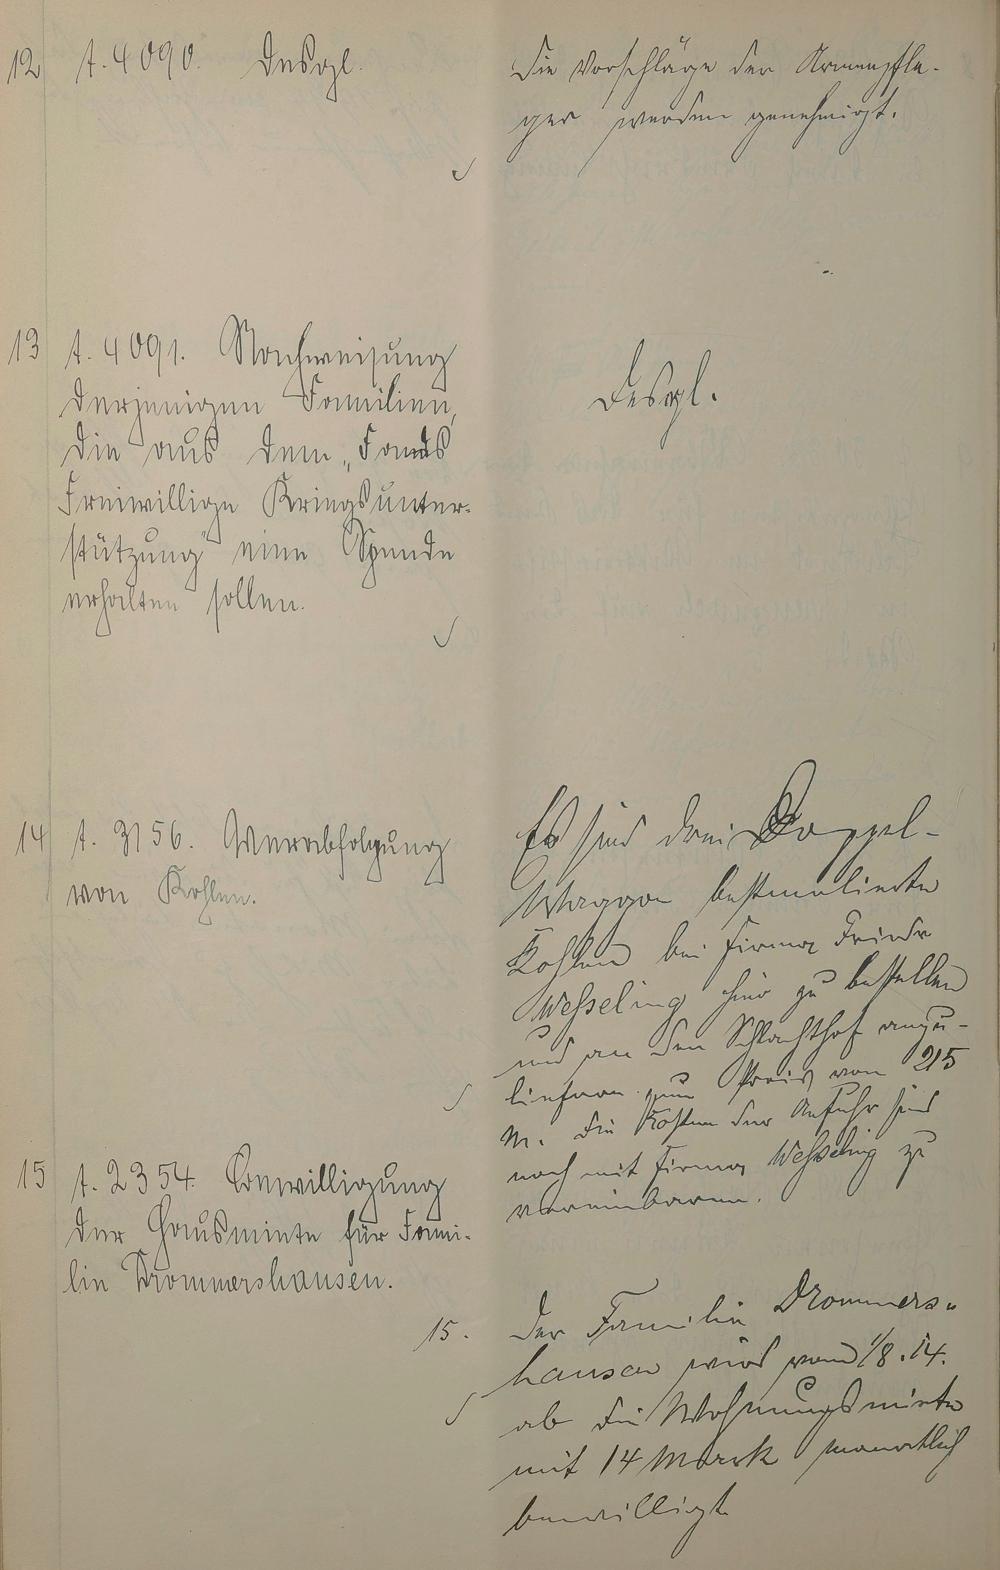 12 t. 4090. Desgl.
Die Vorschläge der Armenpfle-
ger werden genehmigt.
13 t. 4091. Nachweisung
derjenigen Familien,
die aus dem „Fonds
Freiwillige Kriegsunter-
stützung" eine Spende
erhalten sollen.
Desgl.
14 t. 3156. Verabfolgung
von Kohlen.
Es sind drei Doppel-
Waggon bestmelierte
Kohlen bei Firma Friedr
Wesseling hier zu bestellen
und an den Schlachthof anzu-
liefern zum Preis von 215
M. Die Kosten der Anfuhr sind
noch mit Firma Wesseling zu
vereinbaren.
15 t. 2354. Bewilligung
der Hausmiete für Fami-
lie Drommershausen.
15. Der Familie Drommers-
hausen wird vom 1/8.14.
ab die Wohnungsmiete
mit 14 Mark monatlich
bewilligt